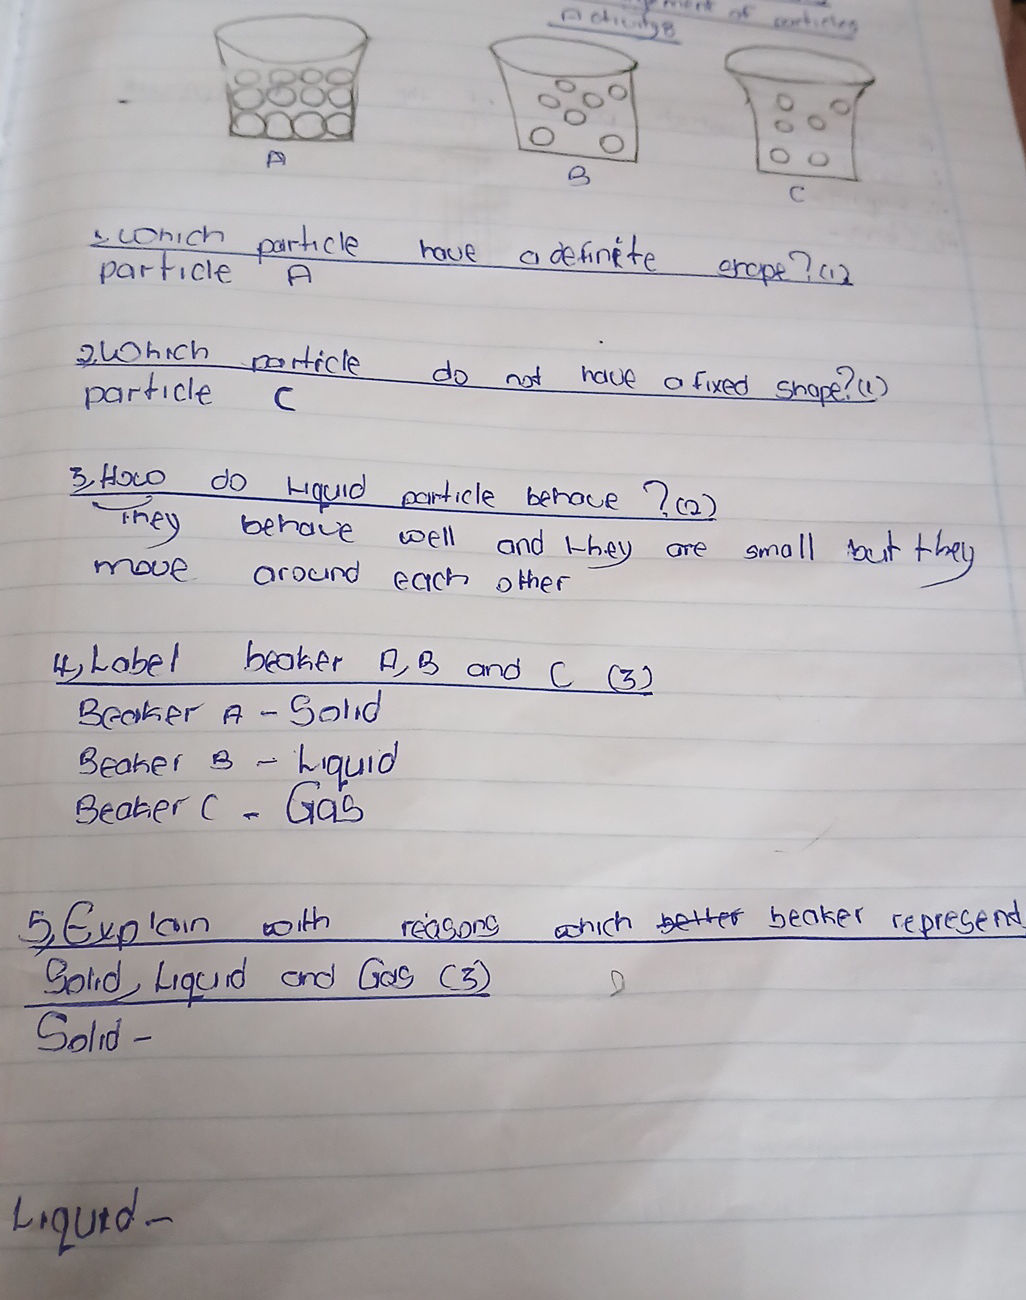 ment of particles
Activity 8
A
B
C
1. Which particle have a definite shape? (1)
particle A
2. Which particle do not have a fixed shape? (1)
particle C
3, How do Liquid particle behave ? (2)
They behave well and they are small but they
move around each other
4, Label beaker A, B and C (3)
Beaker A - Solid
Beaker B - Liquid
Beaker C - Gas
5, Explain with reasons which better beaker represend
Solid, Liquid and Gas (3)
Solid -
Liquid -